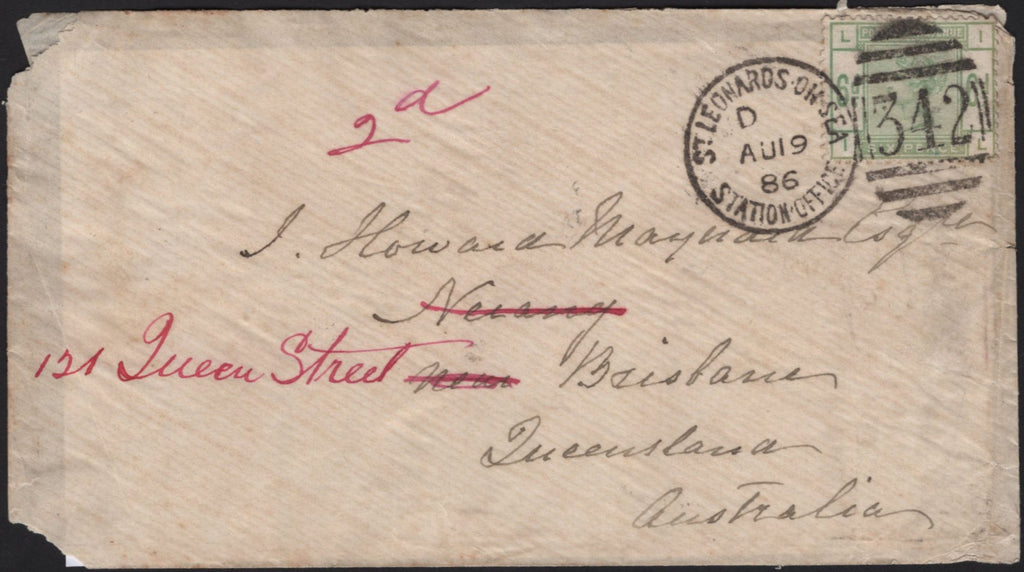 2d
ST. LEONARDS-ON-SEA
D
AU 19
86
STATION-OFFICE
L I
I L
342
J. Howard Maynard Esqre
Nerang
121 Queen Street near Brisbane
Queensland
Australia